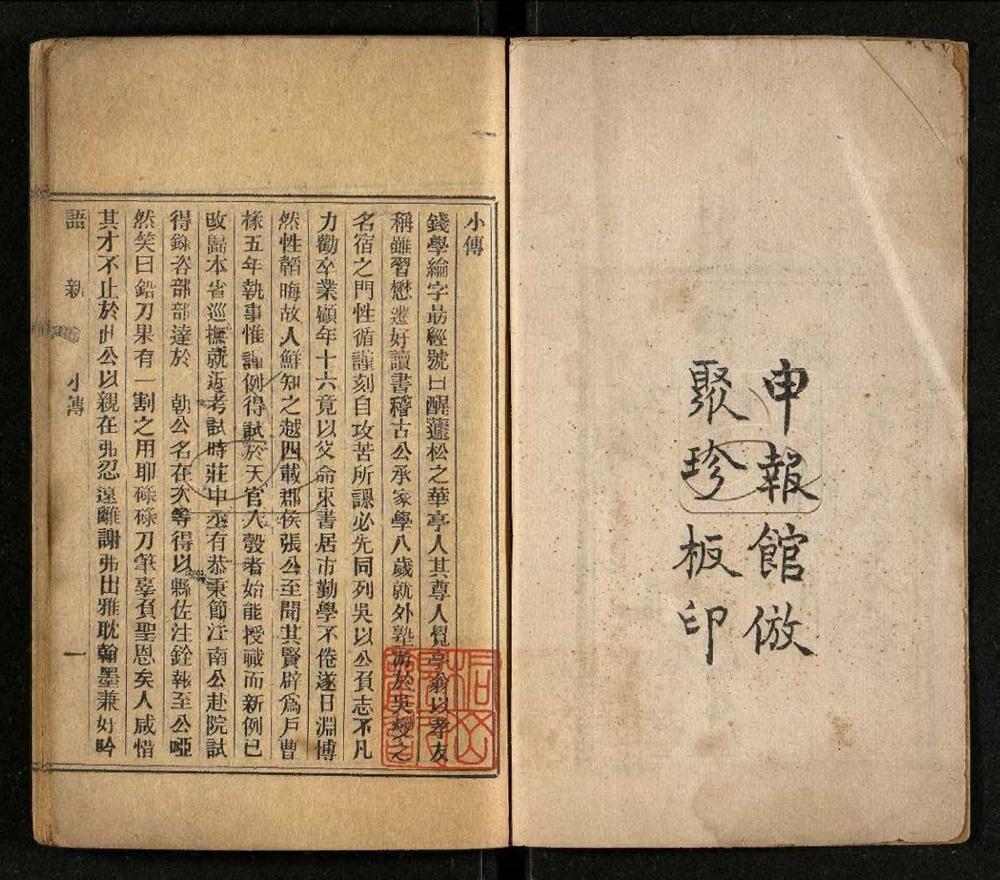 申報館倣
聚珍板印
小傳
錢學綸字勗經號曰醒蘧松之華亭人其尊人覺亭翁以孝友
稱雖習懋遷好讀書稽古公承家學八歲就外塾游於吳夑之
名宿之門性循謹刻自攻苦所課必先同列吳以公負志不凡
力勸卒業顧年十六竟以父命束書居市勤學不倦遂日淵博
然性韜晦故人鮮知之越四載郡侯張公至聞其賢辟爲戶曹
椽五年執事惟謹例得試於天官入彀者始能授職而新例已
改歸本省巡撫就近考試時莊中丞有恭秉節江南公赴院試
得錄咨部部達於 朝公名在次等得以縣佐注銓報至公啞
然笑曰鉛刀果有一割之用耶碌碌刀筆辜負聖恩矣人咸惜
其才不止於此公以親在弗忍遠離謝弗出雅耽翰墨兼好吟
語新 小傳 一